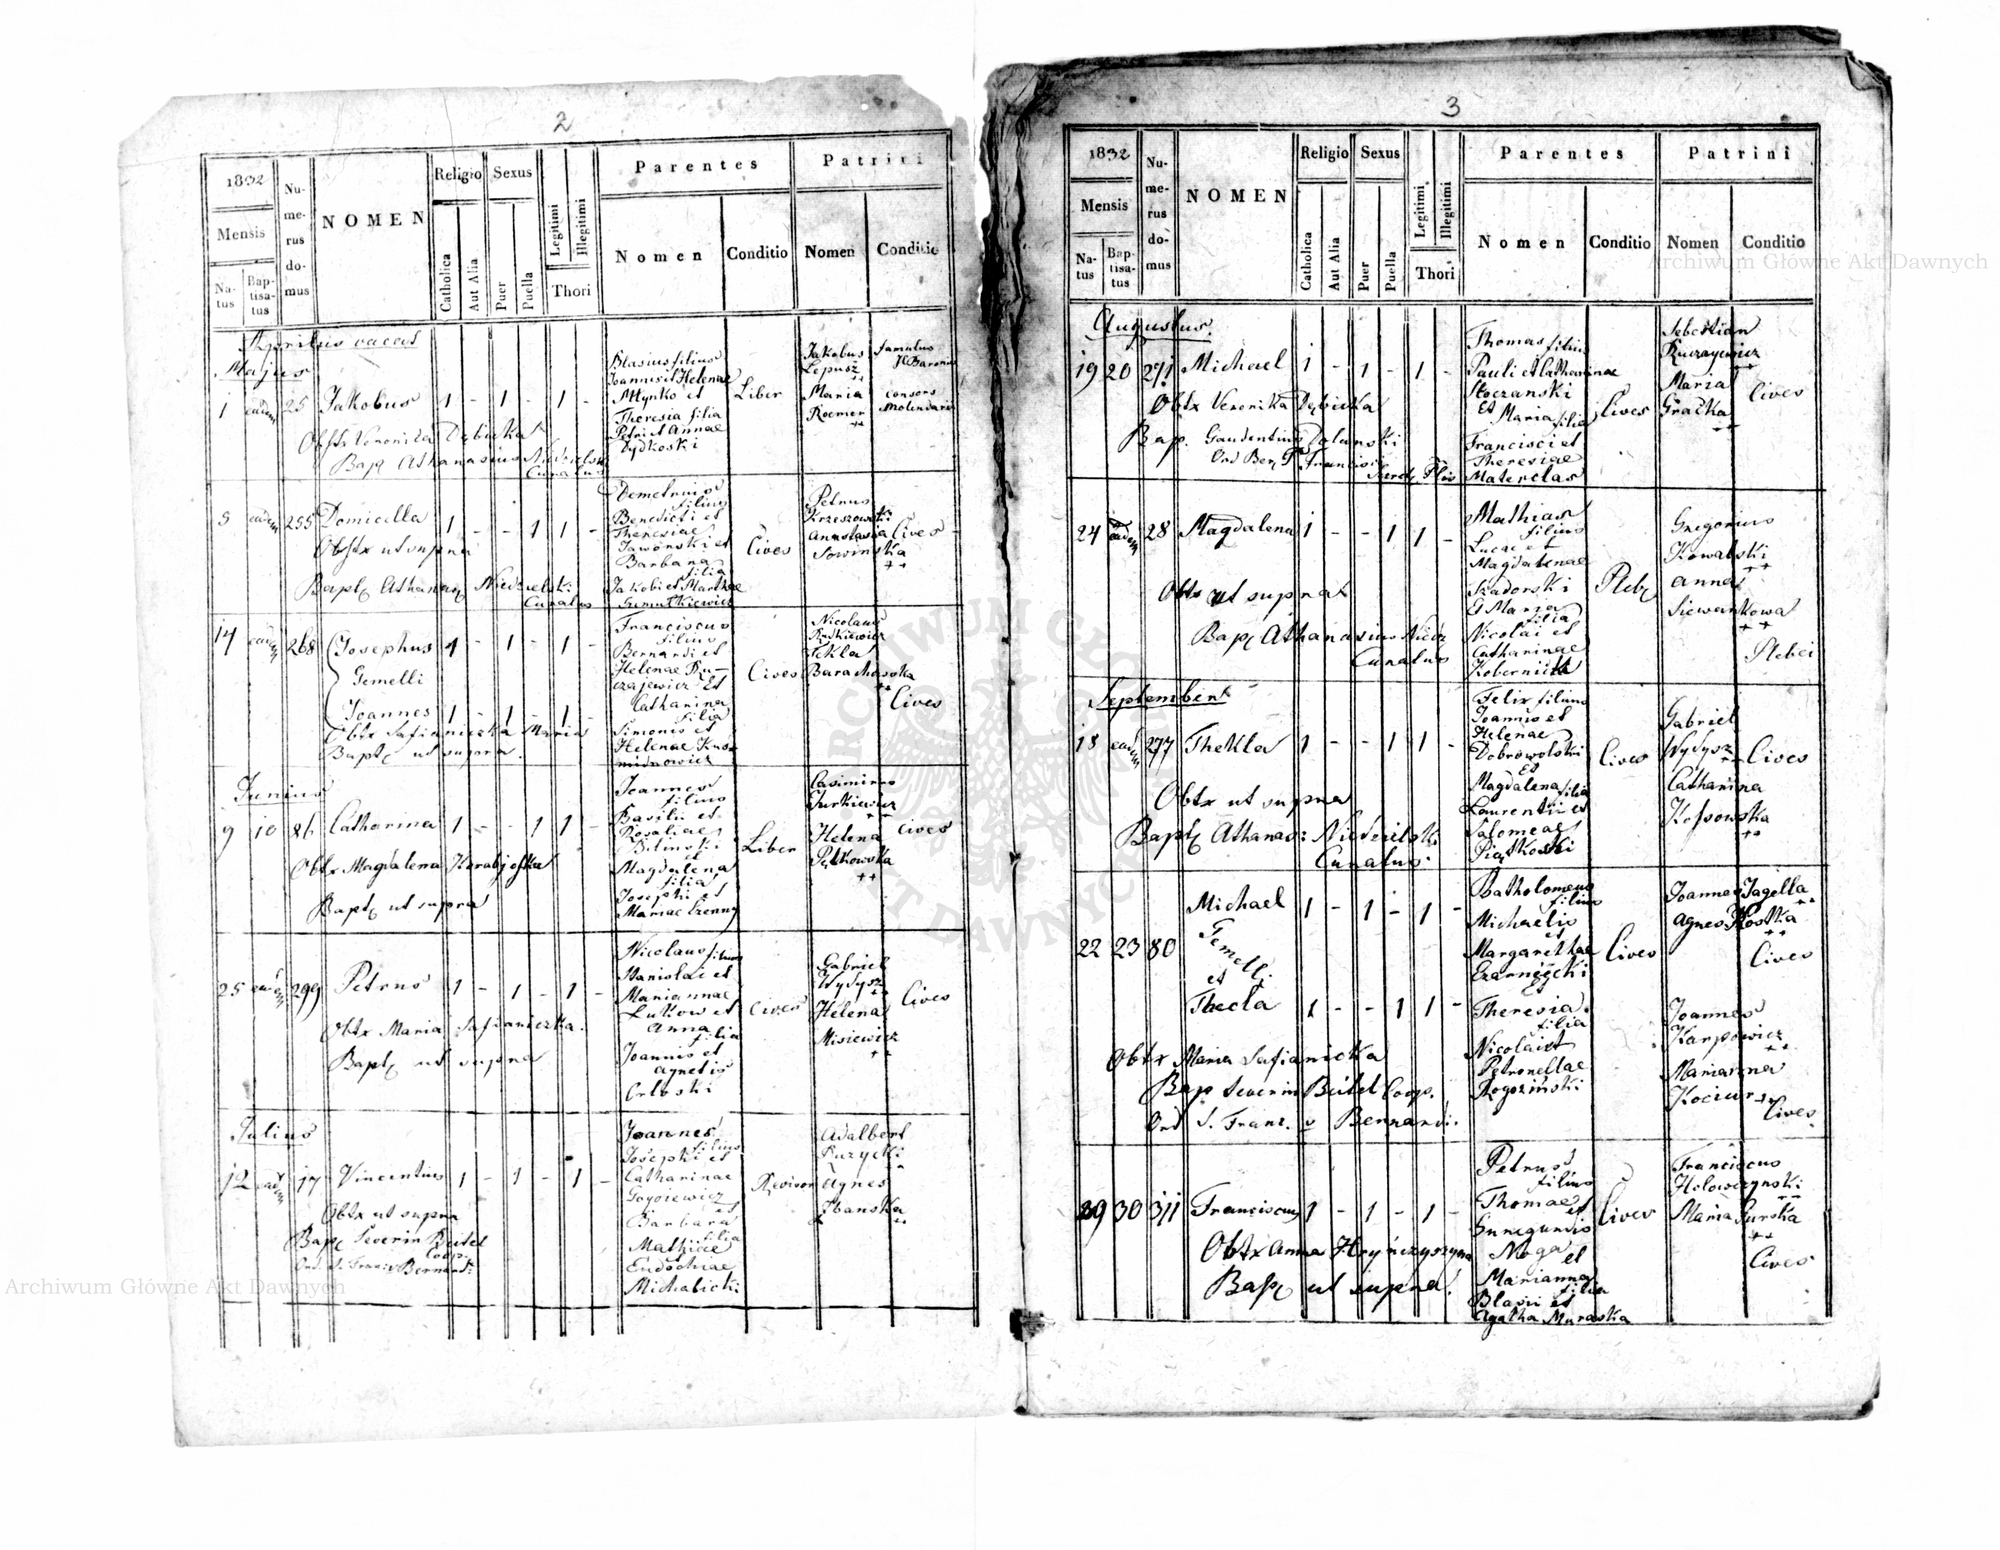 2
1832
Mensis
Na-
tus
Bap-
tisa-
tus
Nu-
me-
rus
do-
mus
NOMEN
Religio
Catholica
Aut Alia
Sexus
Puer
Puella
Legitimi
Illegitimi
Thori
Parentes
Nomen
Conditio
Patrini
Nomen
Conditio
Aprilis vacat
Majus
1 eadem 25 Jakobus 1 - 1 - 1 -
Blasius filius
Joannis et Helenae
Młynko et
Theresia filia
Petri et Annae
Dydkoski
Liber
Jakobus
Lepusz
++
Maria
Roemer
++
famulus
consors
Molendarii
Obstx Veronica Dębicka
Bapt Athanasius
Curatus
5 eadem 255 Domicella 1 - - 1 1 -
Demetrius
filius
Benedicti et
Theresiae
Jaworski et
Barbara
filia
Jakobi et Marthae
Cives
Petrus
Krzeszowski
Anastasia
Sowinska
++
Cives
Obstx ut supra
Bapt Athanas Niedzielski
Curatus
14 eadem 268 Josephus 1 - 1 - 1
Gemelli
Joannes 1 - 1 - 1 -
Franciscus
filius
Bernardi et
Helenae Ru-
czajewicz Et
Catharina
filia
Simonis et
Helenae Kus-
Cives
Nicolaus
Rutkiewicz
Tekla
++
Cives
Obtx Safianiczka Maria
Bapt ut supra
Junius
9 10 86 Catharina 1 - - 1 1 -
Joannes
filius
Basilii et
Rosaliae
Bilinski
et
Magdalena
filia
Josephi et
Mariae Czerny
Liber
Casimirus
Turkiewicz
++
Helena
Pętkowska
++
Cives
Obtx Magdalena
Bapt ut supra
25 eadem 299 Petrus 1 - 1 - 1 -
Nicolaus filius
Stanislai et
Mariannae
Lukow et
Anna
filia
Joannis et
Agnetis
Orłoski
Cives
Gabriel
Wydysz
++
Helena
Misiewicz
++
Cives
Obtx Maria Safianiczka
Bapt ut supra
Julius
12 eadem 17 Vincentius 1 - 1 - 1 -
Joannes
filius
Josephi et
Catharinae
et
Barbara
filia
Mathiae
Eudochiae
Michalicki
Revisor
Adalbert
Ruzycki
Agnes
Obtx ut supra
Bapt Severin Beitel
Coop.
Ord. S. Franc. Bernard:
3
1832
Mensis
Na-
tus
Bap-
tisa-
tus
Nu-
me-
rus
do-
mus
NOMEN
Religio
Catholica
Aut Alia
Sexus
Puer
Puella
Legitimi
Illegitimi
Thori
Parentes
Nomen
Conditio
Patrini
Nomen
Conditio
Augustus
19 20 271 Michael 1 - 1 - 1 -
Thomas filius
Pauli et Catharinae
Stoczanski
Et Maria filia
Francisci et
Theresiae
Materclas
Cives
Sebestian
Ruczayewicz
++
Maria
Gracka
++
Cives
Obtx Veronika Dębicka
Bap. Gaudentius
24 eadem 28 Magdalena 1 - - 1 1 -
Mathias
filius
Lucae et
Magdalenae
Szadorski
Et Maria
filia
Nicolai et
Catharinae
Plebe
Gregorius
Kowalski
++
Anna
Siewankowa
++
Plebei
Obtx ut supra
Bapt Athanasius Niedz
Curatus
Septembert
18 eadem 277 Thekla 1 - - 1 1 -
Felix filius
Joannis et
Helenae
Dobrowolski
Et
Magdalena filia
Laurentii et
Salomeae
Piątkoski
Cives
Gabriel
Wydysz
++
Catharina
Kossowska
++
Cives
Obtx ut supra
Bapt Athanas: Niedzielski
Curatus.
22 23 80
Michael 1 - 1 - 1 -
Gemelli
et
Thecla 1 - - 1 1 -
Batholomeus
filius
Michaelis
et
Margarethae
Czarnęcki
Et
Theresia
filia
Nicolai et
Petronellae
Rogoziński
Cives
Joannes Jagella
++
Agnes Kostka
++
Cives
Joannes
Karpowicz
++
Marianna
Kociur ++
Cives
Obtx Maria Safianicka
Bap Severin Beitel Coop.
Ord S. Franc. Bernardi.
29 30 311 Franciscus 1 - 1 - 1 -
Petrus
filius
Thomae et
Cunegundis
Noga
et
Marianna
filia
Blasii et
Agatha Muraska
Cives
Franciscus
Holowczynski
++
Maria Gurska
++
Cives
Obtx Anna Hryńczyszyna
Bapt ut supra.
Archiwum Główne Akt Dawnych
Archiwum Główne Akt Dawnych
ARCHIWUM GŁÓWNE AKT DAWNYCH